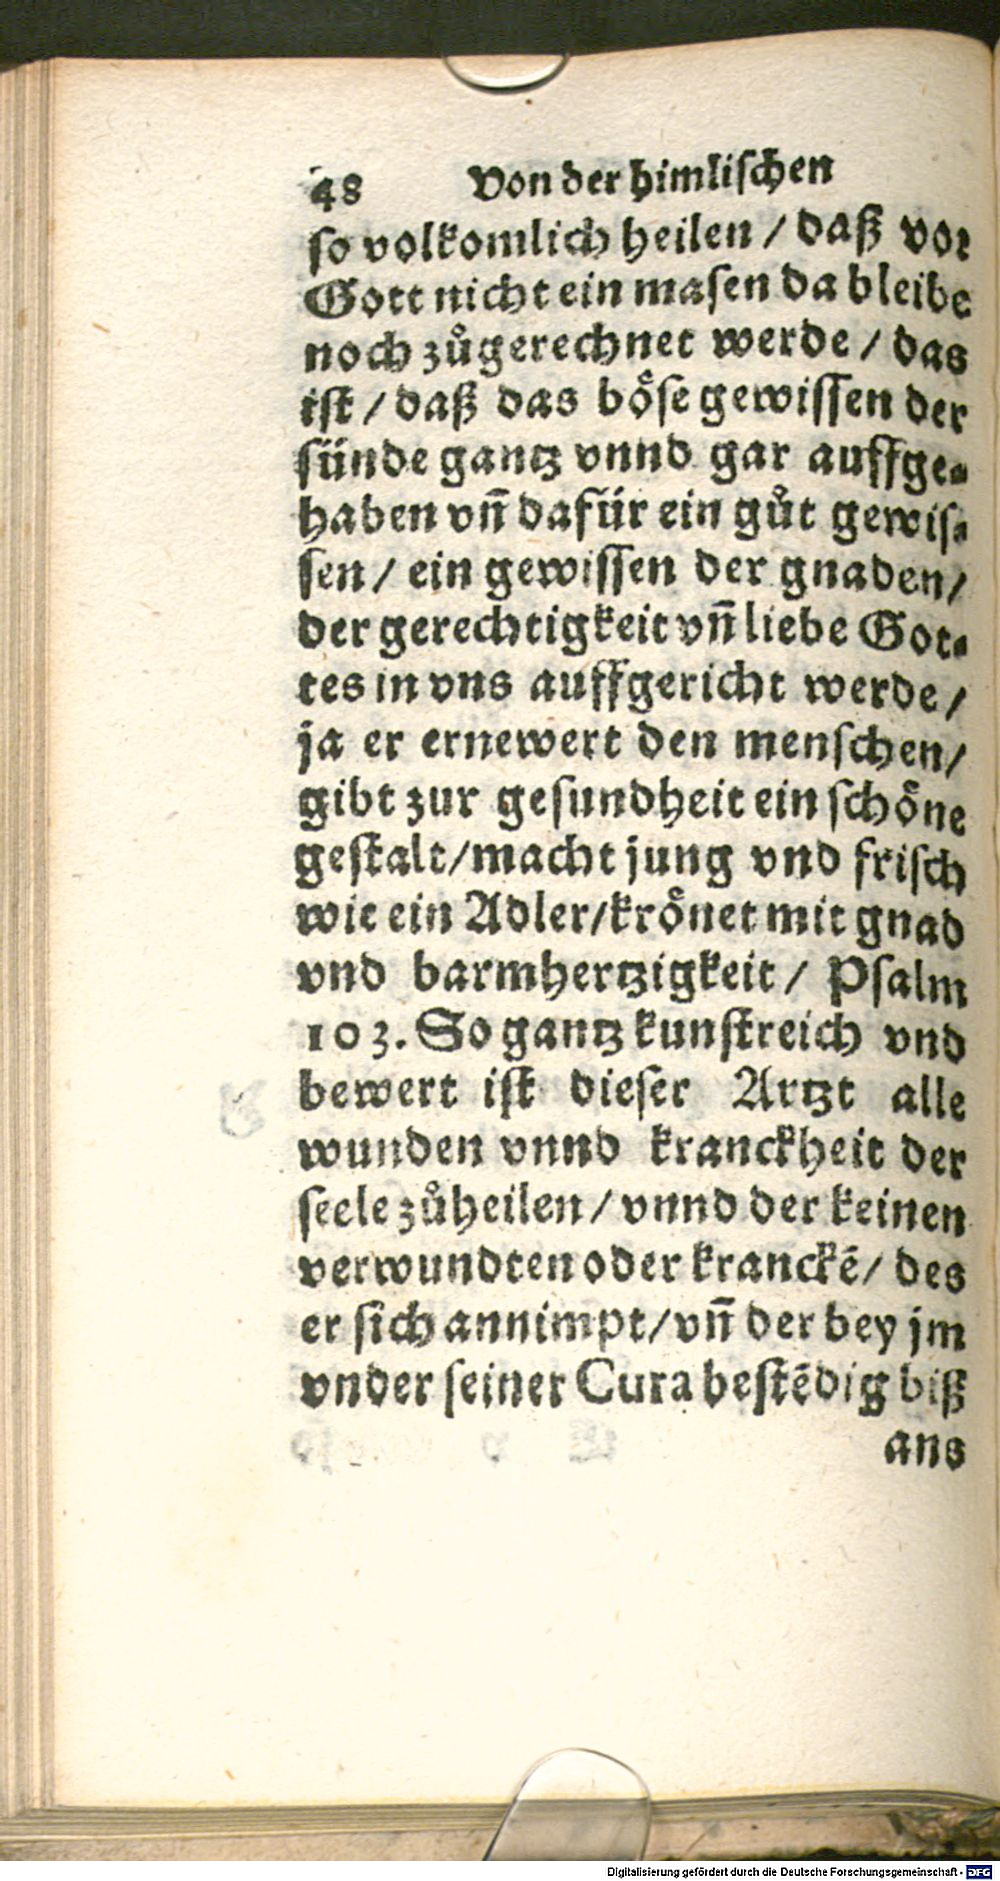 48 Von der himlischen
so volkomlich heilen / daß vor
Gott nicht ein masen da bleibe
noch zů gerechnet werde / das
ist / daß das bőse gewissen der
sünde gantz vnnd gar auffge⸗
haben vñ dafür ein gůt gewis⸗
sen / ein gewissen der gnaden /
der gerechtigkeit vñ liebe Got⸗
tes in vns auffgericht werde /
ja er ernewert den menschen /
gibt zur gesundheit ein schöne
gestalt / macht jung vnd frisch
wie ein Adler / krönet mit gnad
vnd barmhertzigkeit / Psalm
103. So gantz kunstreich vnd
bewert ist dieser Artzt alle
wunden vnnd kranckheit der
seele zů heilen / vnnd der keinen
verwundten oder kranckē / des
er sich annimpt / vñ der bey jm
vnder seiner Cura bestēdig biß
ans
Digitalisierung gefördert durch die Deutsche Forschungsgemeinschaft - DFG